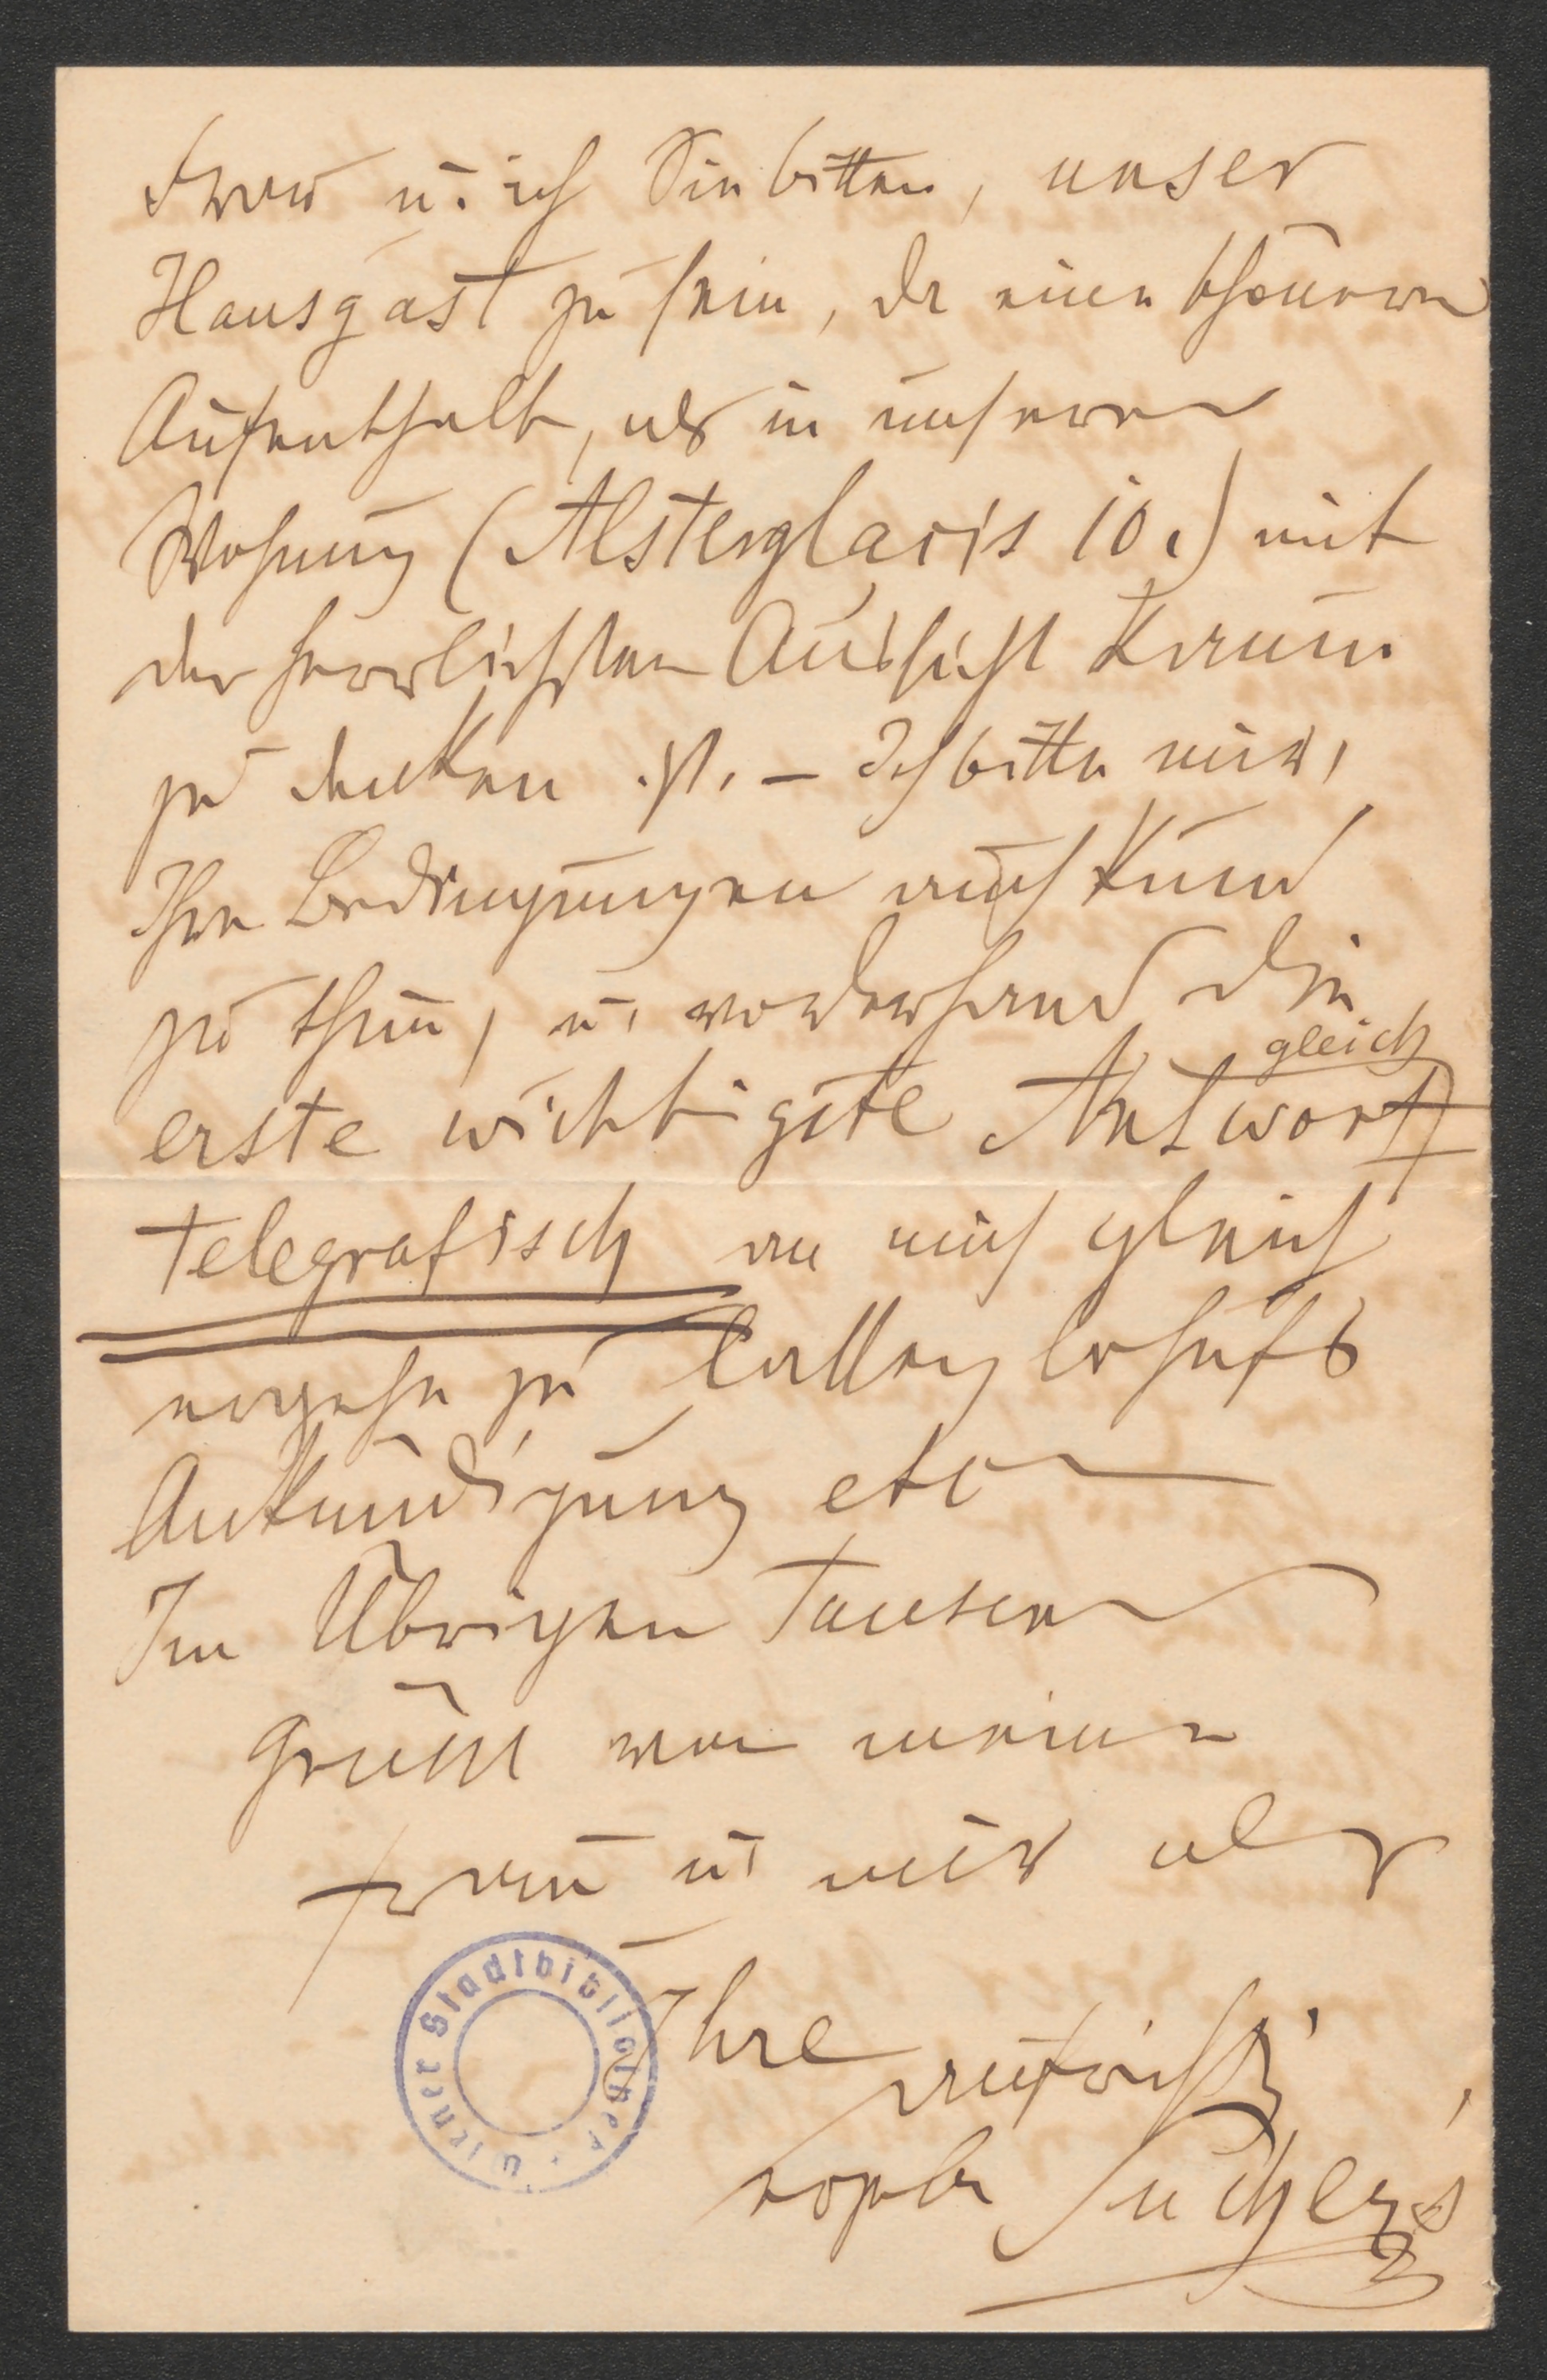 Frau u. ich Sie bitten, unser
Hausgast zu sein, da ein schönerer
Aufenthalt, als in unserer
Wohnung (Alsterglacis 10.) mit
der herrlichsten Aussicht kaum
zu denken ist. – Ich bitte nur,
Ihre Bedingungen auch kund
zu thun, u. vorderhand die
gleich
erste wichtigste Antwort
telegrafisch an mich gleich
ergehn zu lassen, behufs
Ankündigung etc
Im Übrigen tausend
Grüße von meiner
Frau u. mir als
Ihre aufricht.
ergeb. Suchers
Wiener Stadtbibliothek